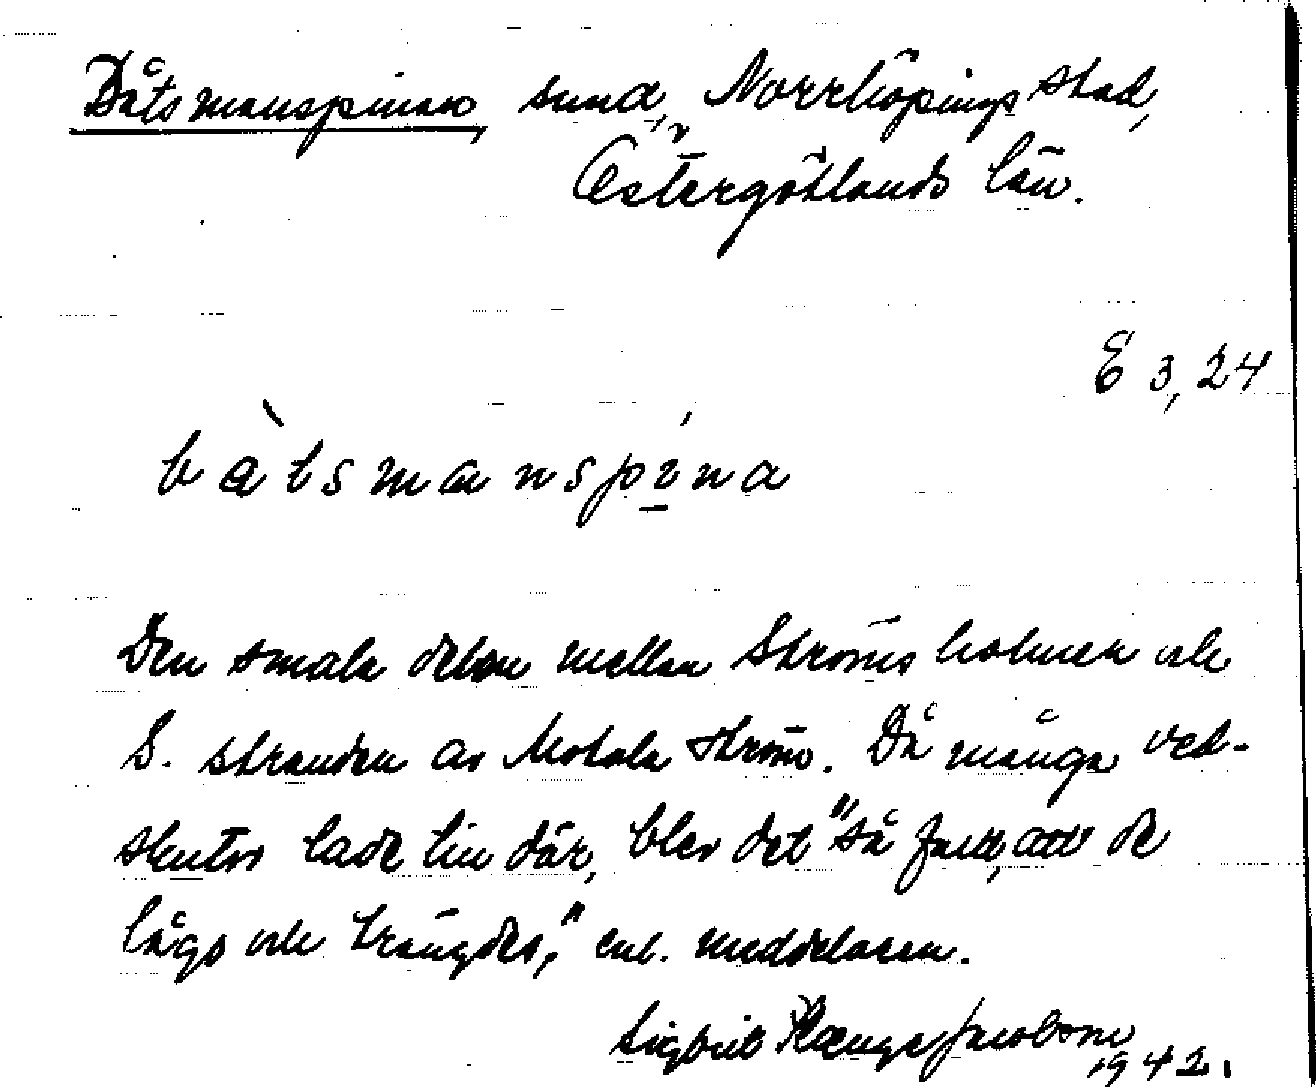 Båtsmanspinan, sund, Norrköpings stad,
Östergötlands län.
E 3, 24
båtsmanspina
Den smala delen mellan Strömsholmen och
S. stranden av Motala ström. Då många ved-
skutor lade till där, blev det "så fullt, att de
lågo och trängdes," enl. meddelaren.
Sigbrit Jacobson
1942.